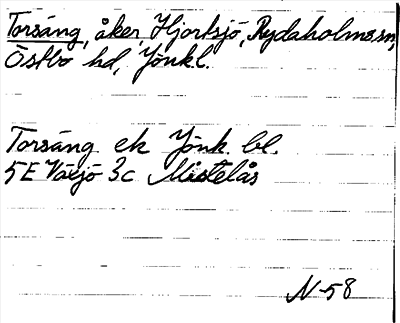 Torsäng, åker, Hjortsjö, Rydaholms sn,
Östbo hd, Jönk.l.
Torsäng ek Jönk. bl.
5E Växjö 3c Mistelås
N-58